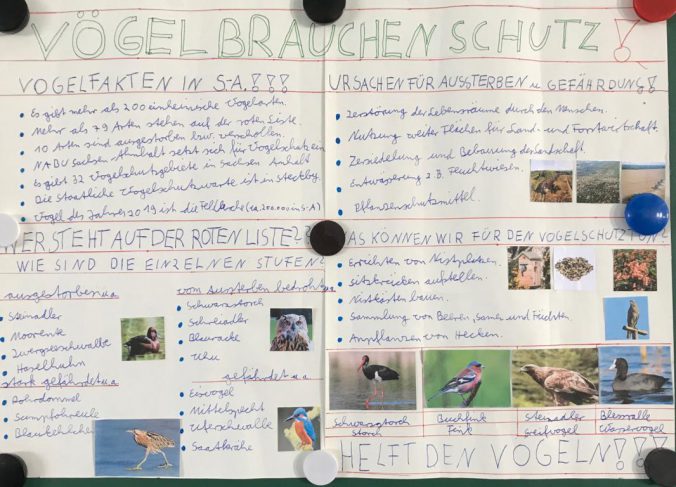 VÖGEL BRAUCHEN SCHUTZ!
VOGELFAKTEN IN S-A.!!!
Es gibt mehr als 200 einheimische Vogelarten.
Mehr als 79 Arten stehen auf der roten Liste.
10 Arten sind ausgestorben bzw. verschollen.
NABU Sachsen-Anhalt setzt sich für Vogelschutz ein
Es gibt 32 Vogelschutzgebiete in Sachsen Anhalt
Die Staatliche Vogelschutzwarte ist in Steckby.
Vogel des Jahres 2019 ist die Feldlerche (ca. 200.000 in S-A)
URSACHEN FÜR AUSSTERBEN u. GEFÄHRDUNG!!
Zerstörung der Lebensräume durch den Menschen.
Nutzung weiter Flächen für Land- und Forstwirtschaft.
Zersiedelung und Bebauung der Landschaft.
Entwässerung z.B. Feuchtwiesen.
Pflanzenschutzmittel.
ER STEHT AUF DER ROTEN LISTE??
WIE SIND DIE EINZELNEN STUFEN?
ausgestorben u.a
Steinadler
Moorente
Zwergseeschwalbe
Haselhuhn
stark gefährdet u.a
Rohrdommel
Sumpfohreule
Blaukehlchen
vom Aussterben bedroht u.a
Schwarzstorch
Schreiadler
Blauracke
Uhu
gefährdet u.a
Eisvogel
Mittelspecht
Uferschwalbe
Saatkrähe
AS KÖNNEN WIR FÜR DEN VOGELSCHUTZ TUN?
Errichten von Nistplätzen.
Sitzkrücken aufstellen.
Nistkästen bauen.
Sammlung von Beeren, Samen und Früchten.
Anpflanzen von Hecken.
Schwarzstorch Buchfink Steinadler Blessralle
Storch Fink Greifvogel Wasservogel
HELFT DEN VÖGELN!!!